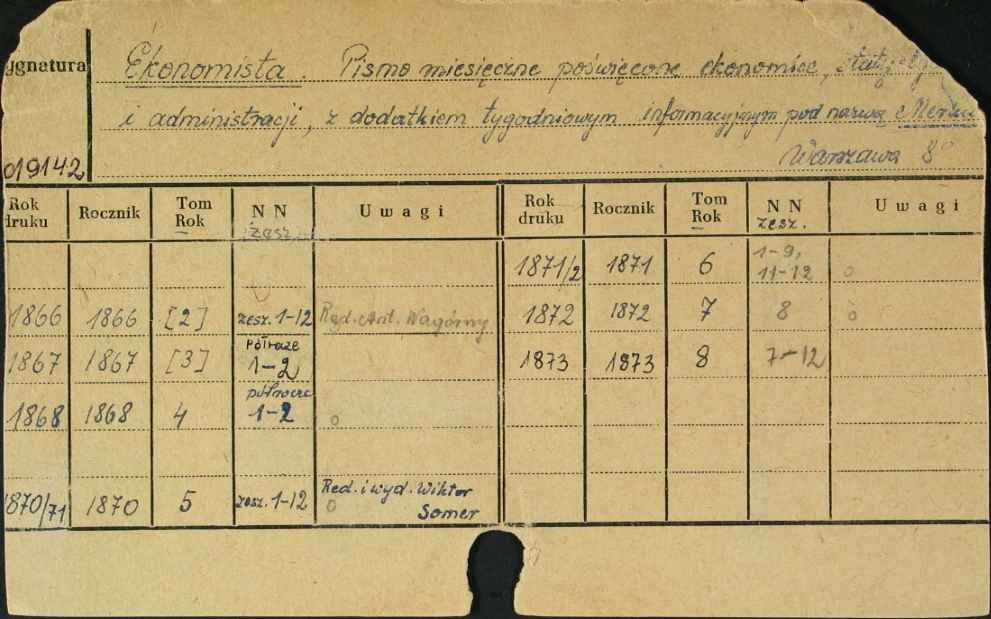 ygnatura
Ekonomista. Pismo miesięczne poświęcone ekonomice,
i administracji, z dodatkiem tygodniowym informacyjnym pod nazwą
019142 Warszawa 8°
Rok druku Rocznik Tom Rok NN zesz. Uwagi Rok druku Rocznik Tom Rok NN zesz. Uwagi
1871/2 1871 6 1-9, 11-12 o
1866 1866 [2] zesz. 1-12 Red. Ant. Nagórny 1872 1872 7 8 o
1867 1867 [3] półrocze 1-2 1873 1873 8 7-12
1868 1868 4 półrocze 1-2 o
1870/71 1870 5 zesz. 1-12 Red. i wyd. Wiktor Somer o